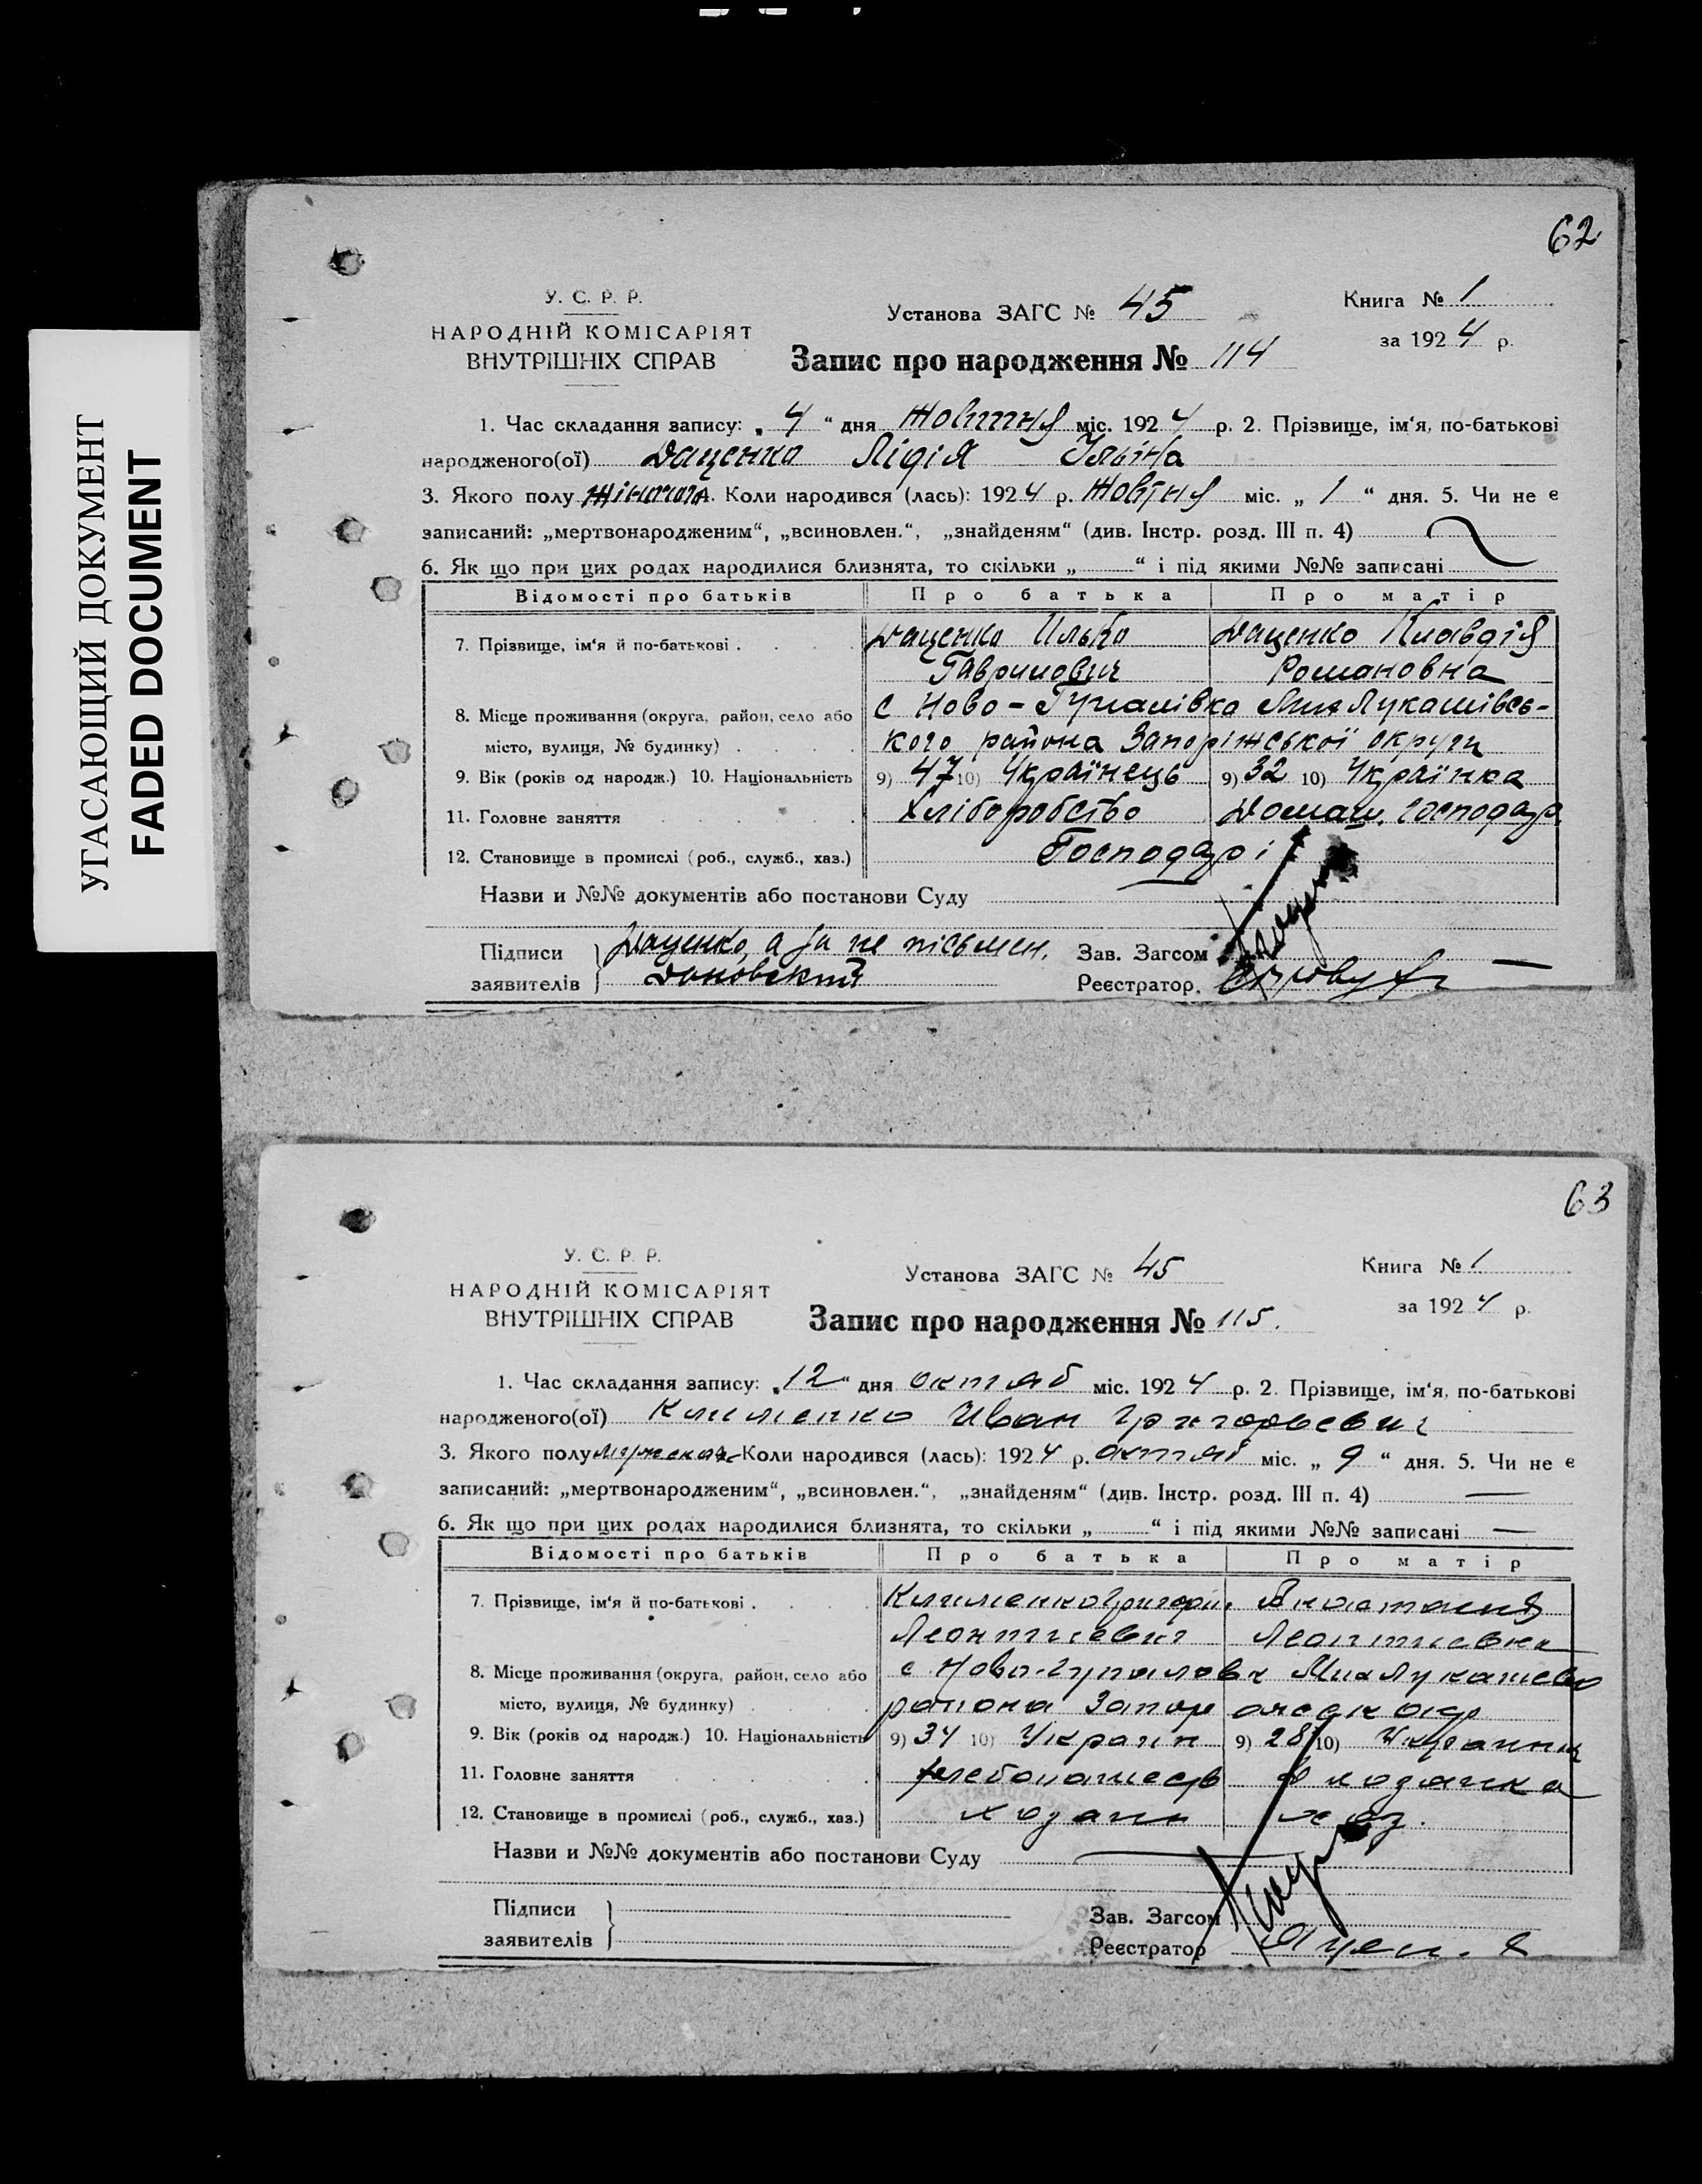 УГАСАЮЩИЙ ДОКУМЕНТ
FADED DOCUMENT
62
У. С. Р. Р.
НАРОДНІЙ КОМІСАРІЯТ
ВНУТРІШНІХ СПРАВ
Установа ЗАГС № 45
Книга № 1
за 1924 р.
Запис про народження № 114
1. Час складання запису: „4“ дня Жовтня міс. 1924 р. 2. Прізвище, ім‘я, по-батькові
народженого(ої) Даценко Лідія Ільіна
3. Якого полу Жіночога. Коли народився (лась): 1924 р. Жовтня міс. „1“ дня. 5. Чи не є
записаний: „мертвонародженим“, „всиновлен.“, „знайденям“ (див. Інстр. розд. III п. 4)
6. Як що при цих родах народилися близнята, то скільки „ “ і під якими №№ записані
Відомості про батьків Про батька Про матір
7. Прізвище, ім‘я й по-батькові . Даценко Илько Даценко Клавдія
Гаврилович Романовна
8. Місце проживання (округа, район, село або с Ново-Гупалівка Лукашівсь-
місто, вулиця, № будинку) . кого района Запоріжської округи
9. Вік (років од народж.) 10. Національність 9) 47 10) Українець 9) 32 10) Українка
11. Головне заняття Хліборобство Домаш. господар
12. Становище в промислі (роб., служб., хаз.) Господарі
Назви и №№ документів або постанови Суду
Підписи Даценко, а за не письмен. Зав. Загсом
заявителів Реєстратор
63
У. С. Р. Р.
НАРОДНІЙ КОМІСАРІЯТ
ВНУТРІШНІХ СПРАВ
Установа ЗАГС № 45
Книга № 1
за 1924 р.
Запис про народження № 115.
1. Час складання запису: „12“ дня октяб міс. 1924 р. 2. Прізвище, ім‘я, по-батькові
народженого(ої) Клименко Иван Григорьевич
3. Якого полу мужеская Коли народився (лась): 1924 р. октяб міс. „9“ дня. 5. Чи не є
записаний: „мертвонародженим“, „всиновлен.“, „знайденям“ (див. Інстр. розд. III п. 4) —
6. Як що при цих родах народилися близнята, то скільки „ “ і під якими №№ записані —
Відомості про батьків Про батька Про матір
7. Прізвище, ім‘я й по-батькові . Клименко Григори. Анастасия
Леонтиевич Леонтиевна
8. Місце проживання (округа, район, село або с Ново-Гупаловк
місто, вулиця, № будинку) района Запорожск окр
9. Вік (років од народж.) 10. Національність 9) 34 10) Украин 9) 28 10)
11. Головне заняття хлебопашеств хозяйка
12. Становище в промислі (роб., служб., хаз.) хозяин хоз.
Назви и №№ документів або постанови Суду
Підписи Зав. Загсом
заявителів Реєстратор